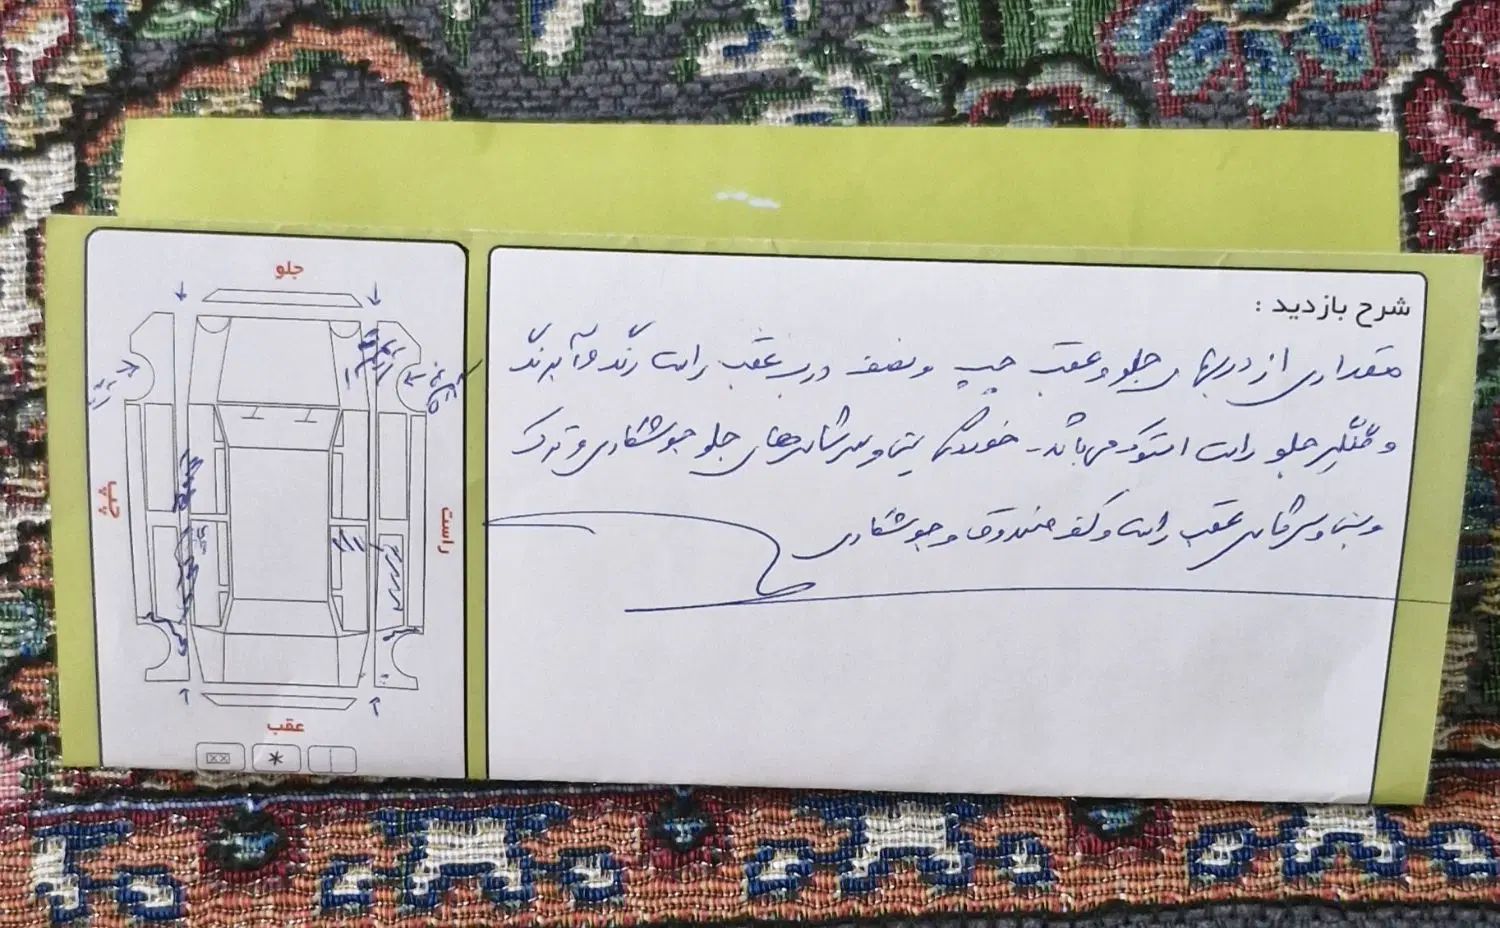 شرح بازدید :
مقداری از دربهای جلو و عقب چپ و نصف درب عقب راست رنگ و آبرنگ
و گلگیر جلو راست استوک می باشد - خوردگی سینی و سرشاسی های جلو جوشکاری و ترک
و سینی و سرشاسی عقب راست و کف صندوق و جوشکاری
جلو
چپ
راست
عقب